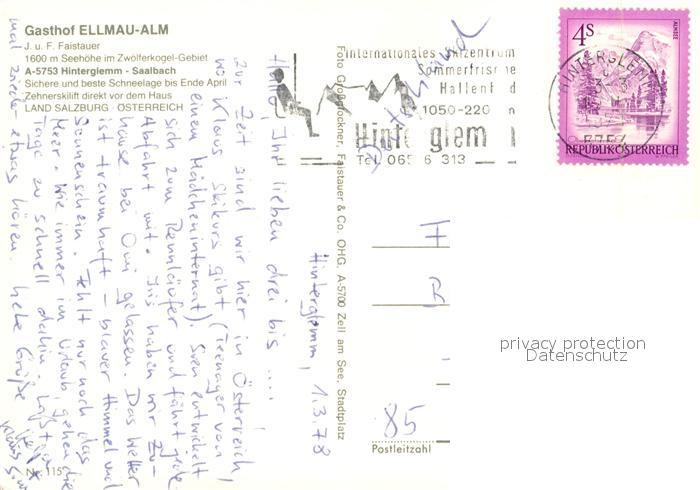 Gasthof ELLMAU-ALM
J. u. F. Faistauer
1600 m Seehöhe im Zwölferkogel-Gebiet
A-5753 Hinterglemm - Saalbach
Sichere und beste Schneelage bis Ende April
Zehnerskilift direkt vor dem Haus
LAND SALZBURG · ÖSTERREICH
Hinterglemm, 1.3.78
Hallo, Ihr lieben drei bis ....
Zur Zeit sind wir hier in Österreich,
wo Klaus Skikurs gibt (Teenager von
einem Mädcheninternat). Sven entwickelt
sich zum Rennläufer und fährt jede
Abfahrt mit. Iris haben wir zu-
hause bei Omi gelassen. Das Wetter
ist traumhaft - blauer Himmel und
Sonnenschein. Fehlt nur noch das
Meer. Wie immer im Urlaub, gehen die
Tage zu schnell dahin. Laßt
mal etwas hören. Grüße
Nr. 115
Foto Großglockner, Faistauer & Co. OHG, A-5700 Zell am See, Stadtplatz
Internationales Skizentrum
Sommerfrische
Hallenb d
1050-220 m
Hinterglemm
Tel. 065 6 313
Deutschland
4S
ALMSEE
REPUBLIK ÖSTERREICH
HINTERGLEMM
5754
85
Postleitzahl
privacy protection
Datenschutz